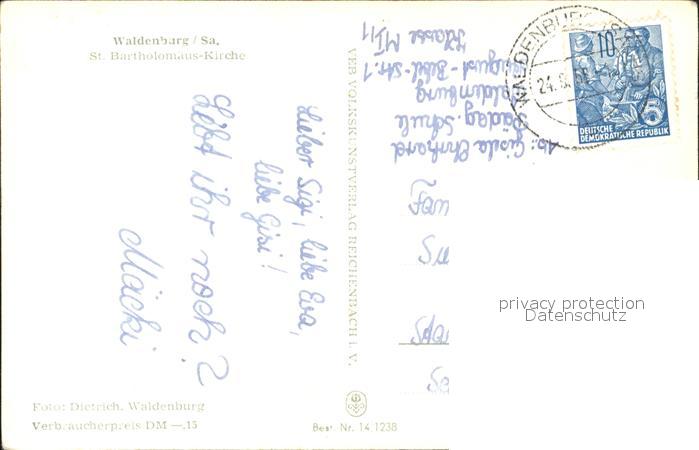 Waldenburg / Sa,
St. Bartholomäus-Kirche
Lieber Sigi, liebe Eva,
liebe Gisi!
Lebt ihr noch?
Mäcki
Foto: Dietrich, Waldenburg
Verbraucherpreis DM —,15
Best. Nr. 14 1238
VEB VOLKSKUNSTVERLAG REICHENBACH i. V.
Ab: Gisela Ehrhard
Pädag. Schule
Waldenburg
August-Bebel-Str. 1
Klasse M I/1
WALDENBURG (S
24.8.
10
5
DEUTSCHE
DEMOKRATISCHE REPUBLIK
privacy protection
Datenschutz